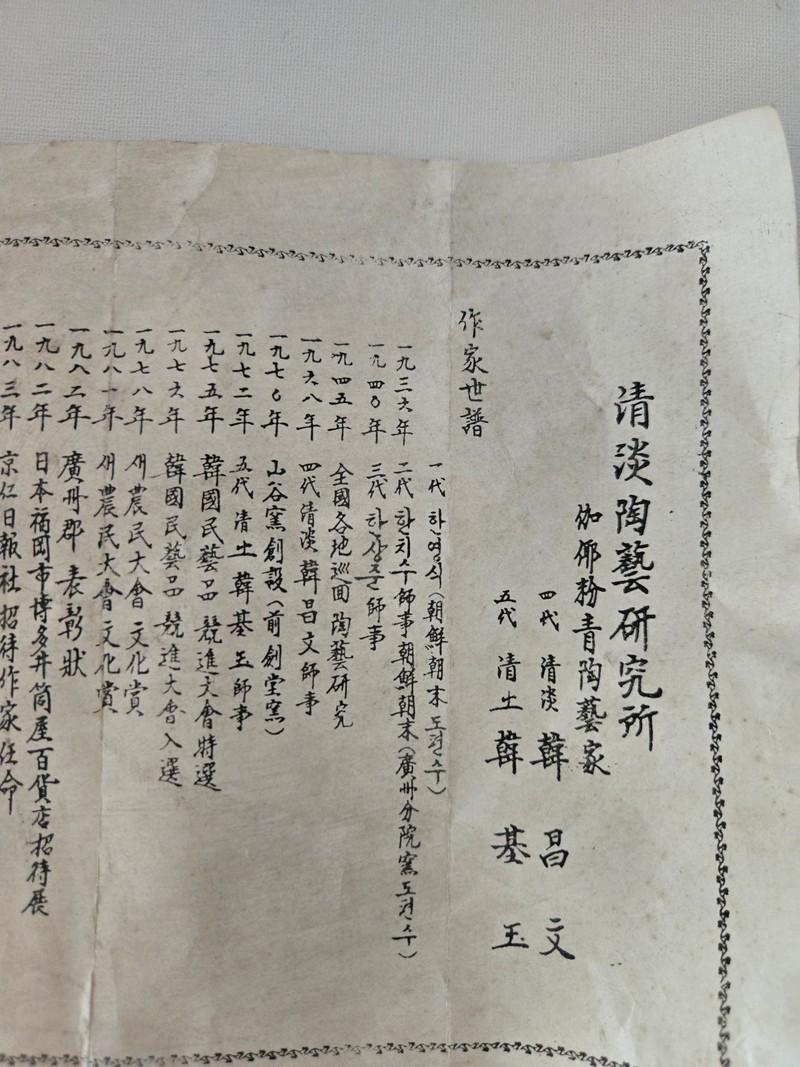 清淡陶藝研究所
伽倻粉青陶藝家
四代 清淡 韓昌文
五代 清土 韓基玉
作家世譜
一代 한영식(朝鮮朝末 도편수)
一九三六年 二代 한치수師事 朝鮮朝末(廣州分院窯도편수)
一九四〇年 三代 한상준師事
一九四五年 全國各地巡回陶藝研究
一九六八年 四代清淡韓昌文師事
一九七〇年 山谷窯創設(前創堂窯)
一九七二年 五代清土韓基玉師事
一九七五年 韓國民藝品競進大會特選
一九七六年 韓國民藝品競進大會入選
一九七八年 새農民大會文化賞
一九八一年 새農民大會文化賞
一九八二年 廣州郡表彰狀
一九八二年 日本福岡市博多井筒屋百貨店招待展
一九八三年 京仁日報社招待作家任命